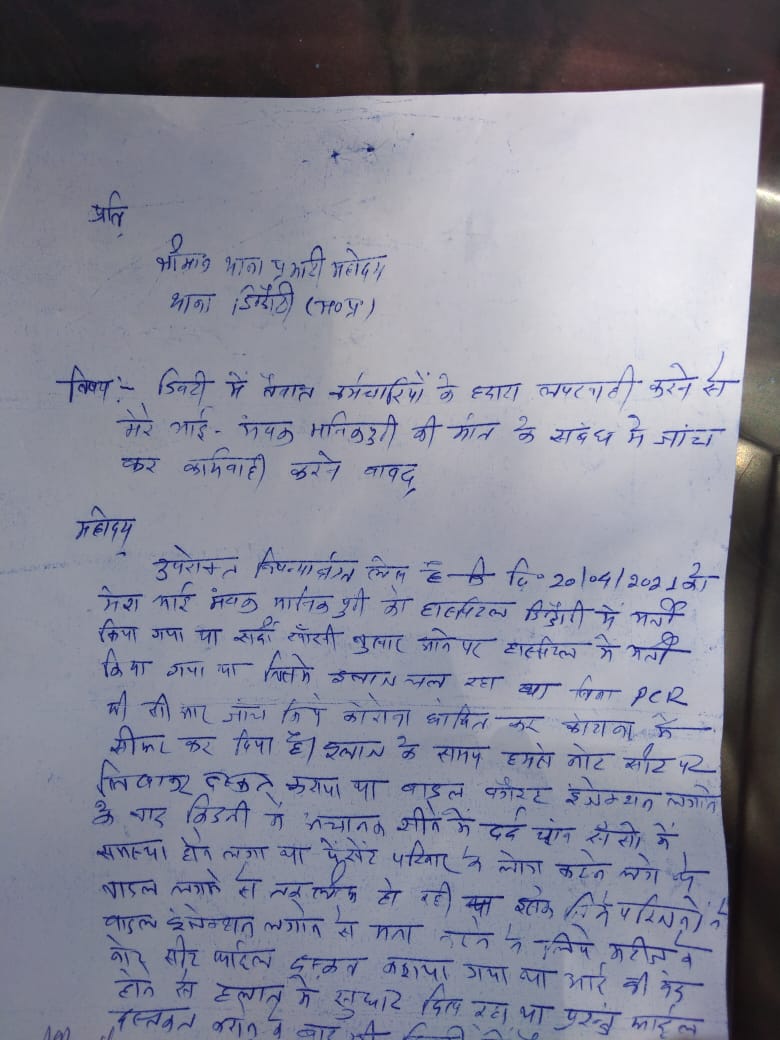 प्रति,
श्रीमान थाना प्रभारी महोदय
थाना डिण्डौरी (म०प्र०)
विषय :- डिवटी में तैनात कर्मचारियों के द्वारा लापरवाही करने से
मेरे भाई - मयंक मानिकपुरी की मौत के संबंध में जांच
कर कार्यवाही करने बावद्
महोदय
उपरोक्त विषयांर्तगत लेख है कि दि० 20/04/2021 को
मेरा भाई मयंक मानिकपुरी को हास्पिटल डिण्डौरी में भर्ती
किया गया था सर्दी खाँसी बुखार होने पर हास्पिटल में भर्ती
किया गया था जिसमे इलाज चल रहा था बिना PCR
जांच किये कोरोना घोषित कर कोरोना के
कर दिया है। इलाज के समय हमसे नोट सीट पर
लिखाकर दस्कत कराया था बाइल इंजेक्शन लगाने
के बाद किडनी में अचानक सीने में दर्द साँसो में
समस्या होने लगा था पेसेंट परिवार के लोग कहने लगे कि
बाइल लगाने से तकलीफ हो रही इसके लिये परिजनों ने
बाइल इंजेक्शन लगाने से मना करने के लिये मरीज के
नोट सीट फाईल दस्कत कराया गया था भाई की
होने से हालात में सुधार दिख रहा था परन्तु फाईल
दस्तखत कराने के बाद भी